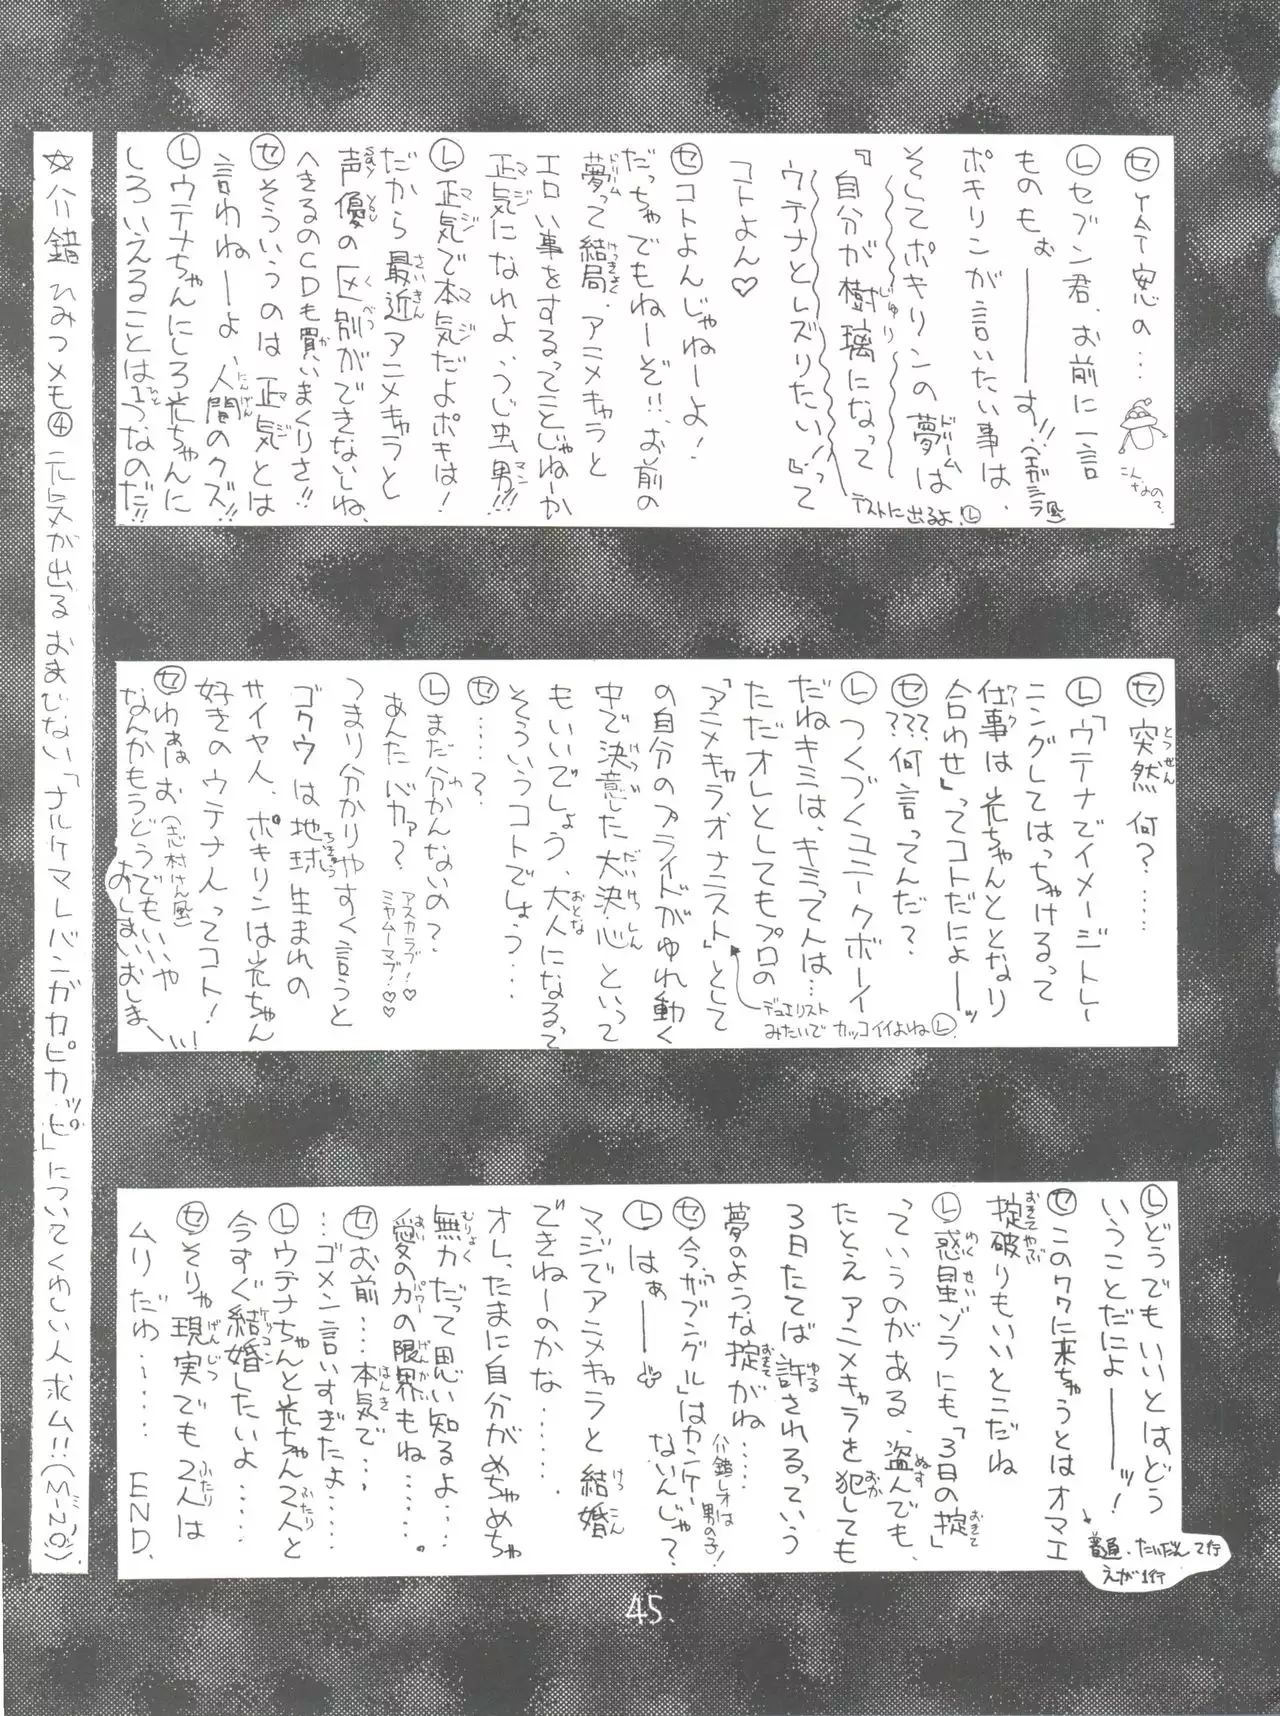 ㋝ …
㋹セブン君、お前に一言
ものもぉ――――す!!(エガシラ風)
ポキリンが言いたい事は、
そしてポキリンの夢は
『自分が樹璃になって
ウテナとレズりたい!』って
コトよん♡
テストに出るよ!㋹
こんなので
㋝コトよんじゃねーよ!
だっちゃでもねーぞ!!、お前の
夢って結局、アニメキャラと
エロい事をするってことじゃねーか
正気になれよ、うじ虫男!!!
㋹正気で本気だよポキは!
だから最近アニメキャラと
声優の区別ができないしね、
へきるのCDも買いまくりさ!!
㋝そういうのは正気とは
言わねーよ、人間のクズ!!
㋹ウテナちゃんにしろ光ちゃんに
しろいえることは1つなのだ!!
㋝突然何?……
㋹「ウテナでイメージトレー
ニングしてはっちゃけるって
仕事は光ちゃんととなり
合わせ」ってコトだにょ――ッ
㋝???何言ってんだ?
㋹つくづくユニークボーイ
だねキミは、キミって人は…
ただオレとしてもプロの
「アニメキャラオナニスト」として
の自分のプライドがゆれ動く
中で決意した大決心といって
もいいでしょう、大人になるって
そういうコトでしょう…
デュエリスト
みたいでカッコイイよね㋹
㋝……?
㋹まだ分かんないの?
あんたバカァ?
アスカラブ!♡
ミヤムーマブ!♡
つまり分かりやすく言うと
ゴクウは地球生まれの
サイヤ人、ポキリンは光ちゃん
好きのウテナ人ってコト!
㋝わぁはぉ(志村けん風)
なんかもうどうでもいいや
おしまいおしま――い!
㋹どうでもいいとはどう
いうことだにょ――――ッ!
㋝このワクに来ちゃうとはオマエ
掟破りもいいとこだね
普通、だいだんて行
えが1行
㋹惑星ゾラにも「3日の掟」
っていうのがある、盗んでも、
たとえアニメキャラを犯しても
3日たてば許されるっていう
夢のような掟がね……
㋝今、「ザブングル」はカンケイ
ないんじゃ?
介錯レオは
男の子!
㋹はぁ――――
マジでアニメキャラと結婚
できねーのかな……
オレ、たまに自分がめちゃめちゃ
無力だって思い知るよ……
愛の力の限界もね……。
㋝お前……本気で…
…ゴメン言いすぎたよ…
㋹ウテナちゃんと光ちゃん2人と
今すぐ結婚したいよ……
㋝そりゃ現実でも2人は
ムリだわ…… END.
☆介錯ひみつメモ④元気が出るおまじない「ナルケマレバンガカピカッピ」についてくわしい人求ム!!(M-NO)
45.